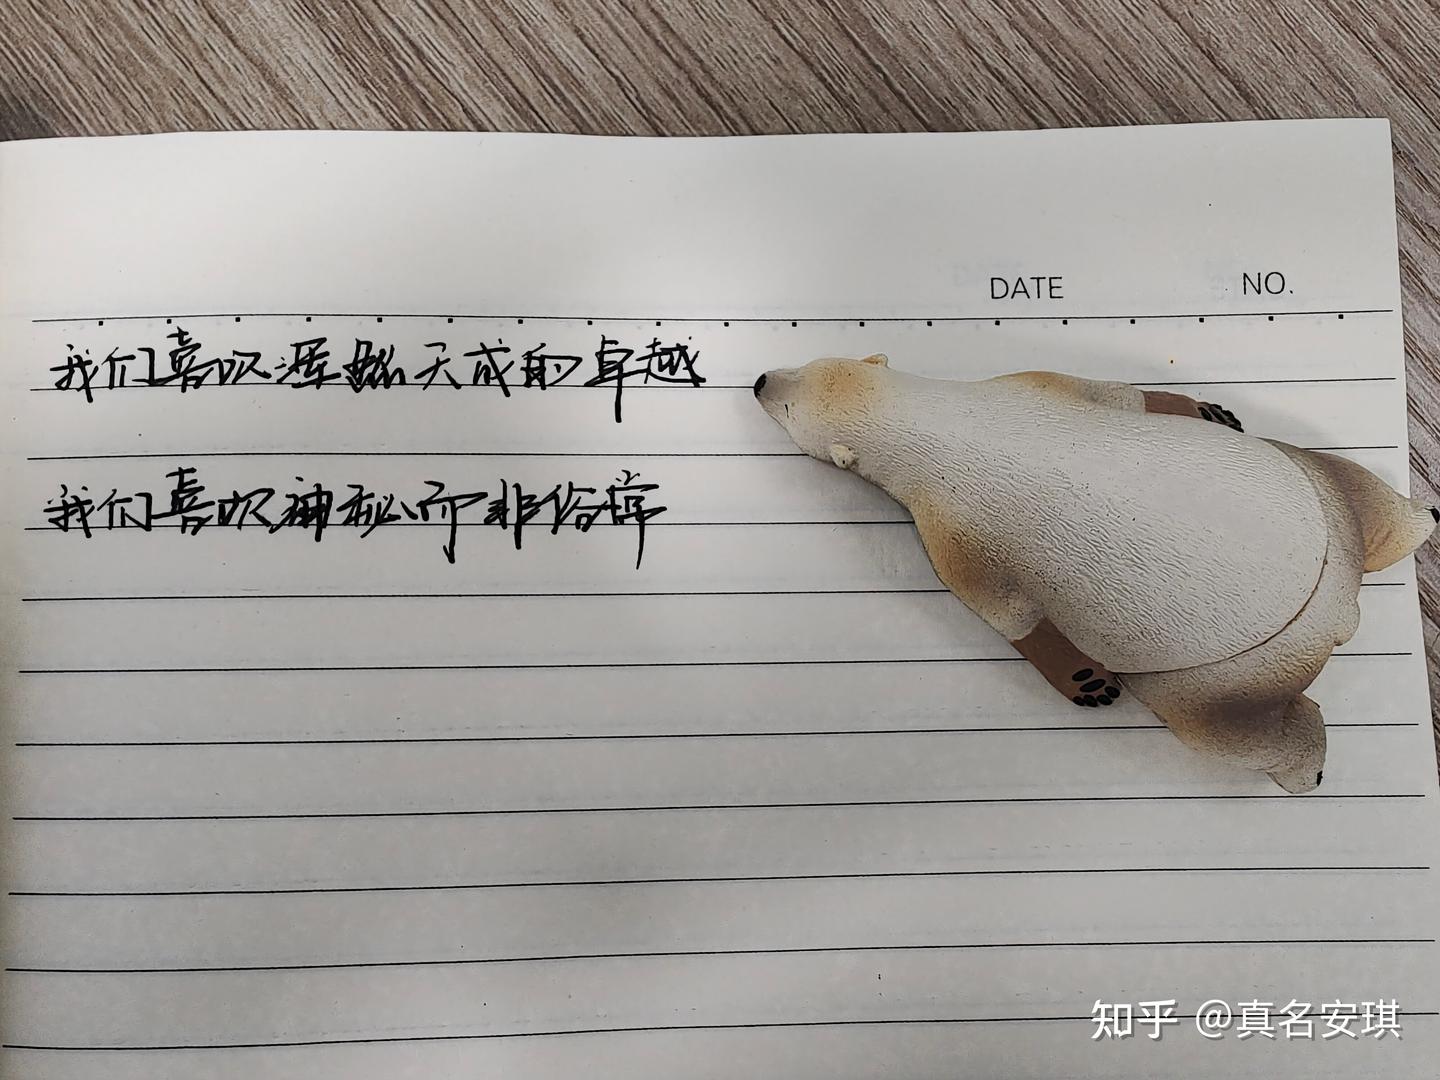 DATE NO.
我们喜欢浑然天成的卓越
我们喜欢神秘而非俗常
知乎 @真名安琪